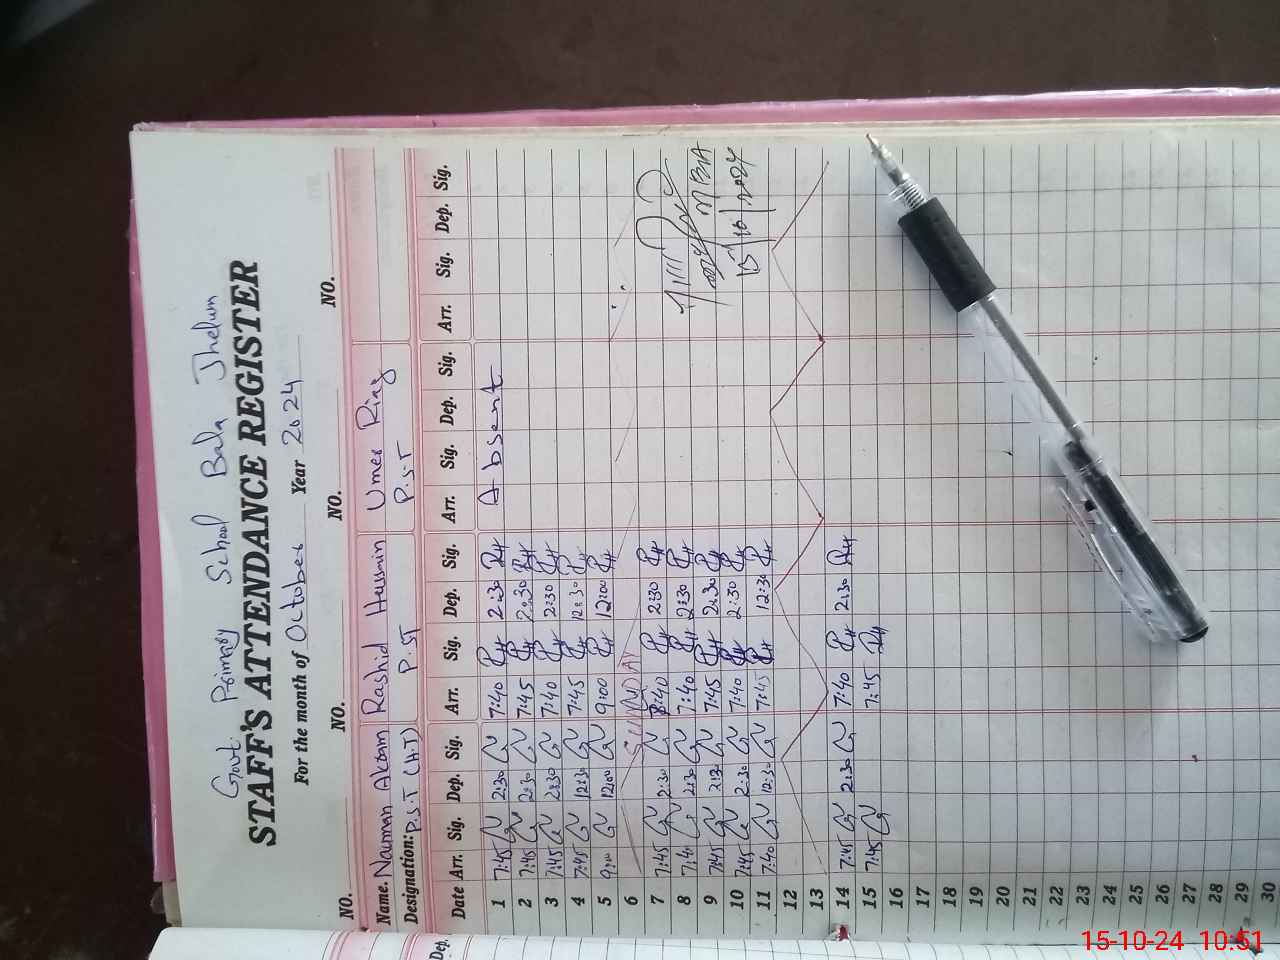 Govt. Primary School Bala Jhelum
STAFF'S ATTENDANCE REGISTER
For the month of October Year 2024
NO. NO. NO. NO.
Name. Nauman Akram Rashid Hussnin Umer Riaz
Designation: P.S.T (H.T) P.ST P.S.T
Dep.
Date Arr. Sig. Dep. Sig. Arr. Sig. Dep. Sig. Arr. Sig. Dep. Sig. Arr. Sig. Dep. Sig.
1 7:45 2:30 7:40 RH 2:30 RH Absent
2 7:45 2:30 7:45 RH 2:30 RH
3 7:45 2:30 7:40 RH 2:30 RH
4 7:45 12:30 7:45 RH 12:30 RH
5 9:00 12:00 9:00 RH 12:00 RH
6 SUNDAY
7 7:45 2:30 7:40 RH 2:30 RH
8 7:45 2:30 7:40 RH 2:30 RH
9 7:45 2:30 7:45 RH 2:30 RH
10 7:45 2:30 7:40 RH 2:30 RH
11 7:40 12:30 7:45 RH 12:30 RH
15/10/2024
12
13
14 7:45 2:30 7:40 RH 2:30 RH
15 7:45 7:45 RH
16
17
18
19
20
21
22
23
24
25
26
27
28
29
30
15-10-24 10:51